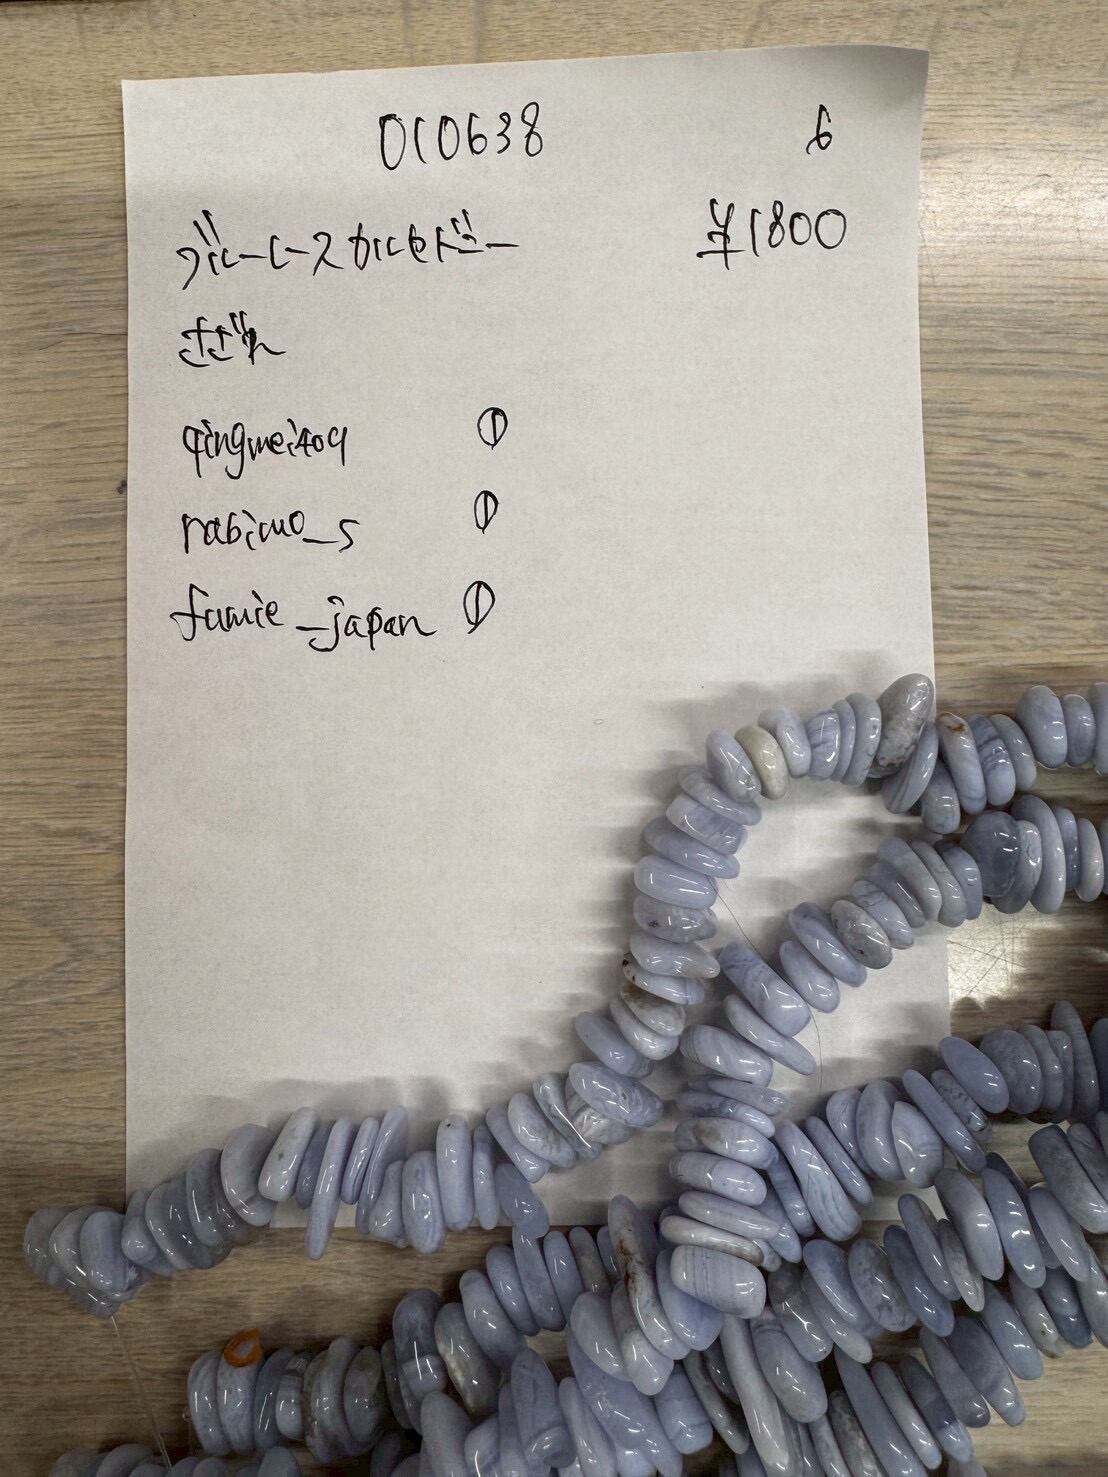 010638 6
ブルーレースカルセドニー ¥1800
さざれ
qingmei409 ①
rabimo_s ①
famie_japan ①